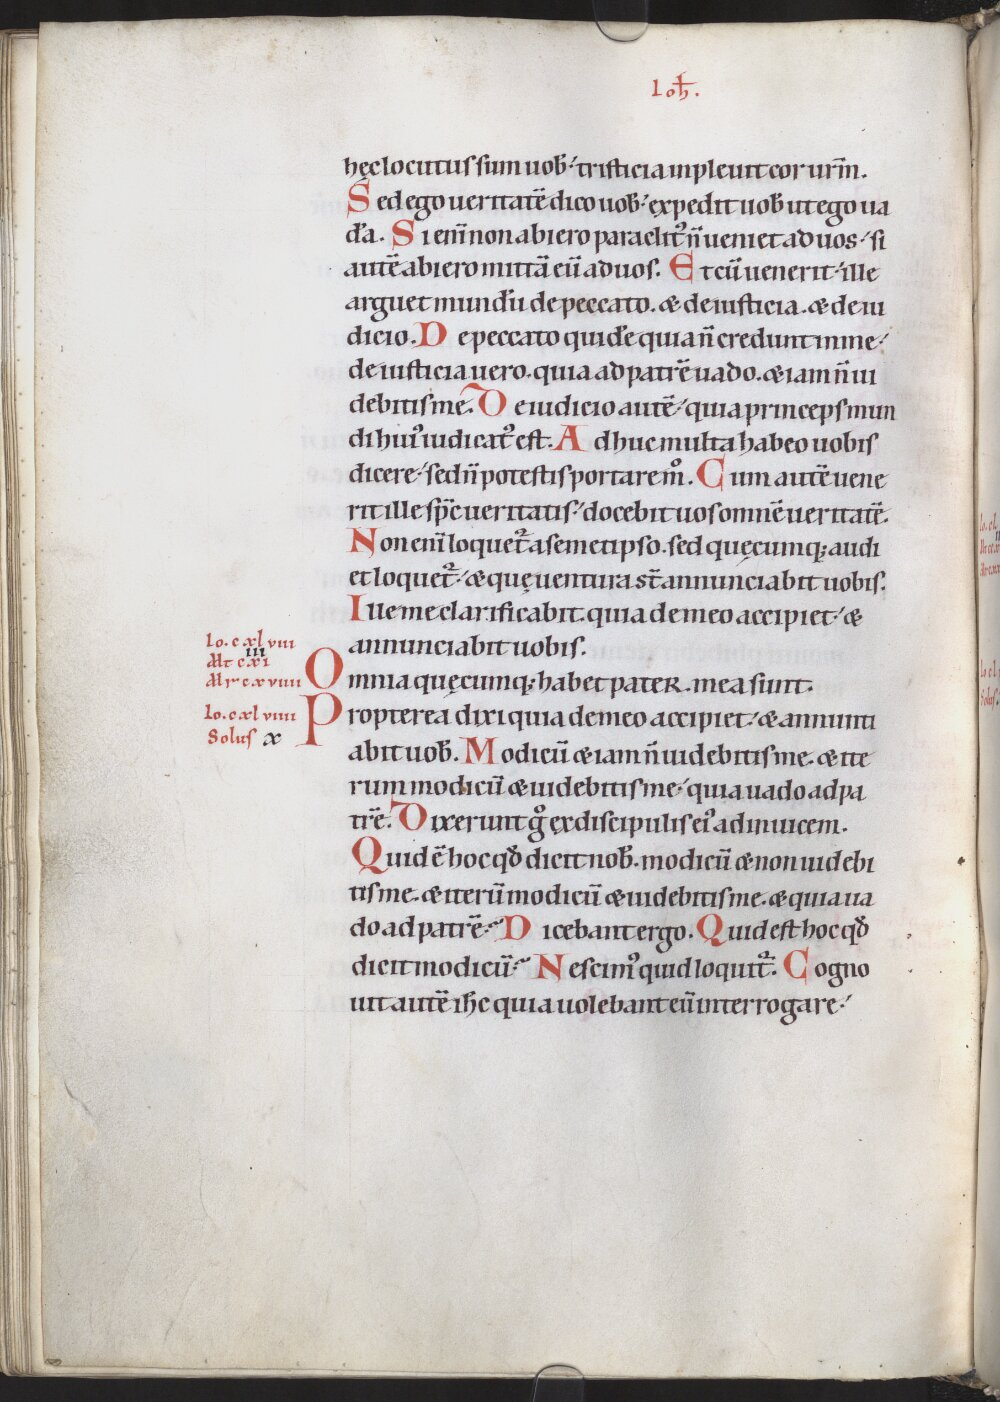 Ioh̄.
hęc locutus sum uob̄; tristicia inpleuit cor ur̄m.
Sed ego ueritatē dico uob̄; expedit uob̄ ut ego ua
dā. Si eni̅ non abiero paraclit᷒ n̄ ueniet ad uos; si
autē abiero mittā eū ad uos. Et cū uenerit; ille
arguet mundū de peccato. & de iusticia. & de iu
dicio. De peccato quidē quia n̄ credunt in me;
de iusticia uero. quia ad patrē uado. & iam n̄ ui
debitis me. De iudicio autē; quia princeps mun
di hui᷒ iudicat᷒ est. Adhuc multa habeo uobis
dicere; sed n̄ potestis portare m̊. Cum autē uene
rit ille sp̄c ueritatis; docebit uos omnē ueritatē.
Non eni̅ loquet᷒ a semetipso. sed quęcumq; audi
et loquet᷒; & quę uentura st̄ annunciabit uobis.
Ille me clarificabit. quia de meo accipiet; &
annunciabit uobis.
Io. cxlviii
III
Mt cxi
Mr cxviiii
Omnia quęcumq; habet pateR. mea sunt.
Io. cxlviiii
Solus X
Propterea dixi quia de meo accipiet; & annunti
abit uob̄. Modicū & iam n̄ uidebitis me. & ite
rum modicū & uidebitis me; quia uado ad pa
trē. Dixerunt g̊ ex discipulis ei᷒ ad inuicem.
Quid ē hoc qđ dicit nob̄. modicū & non uidebi
tis me. & iterū modicū & uidebitis me. & quia ua
do ad patrē? Dicebant ergo. Quid est hoc qđ
dicit modicū? Nescim᷒ quid loquit᷒. Cogno
uit autē ih̄c quia uolebant eū interrogare;